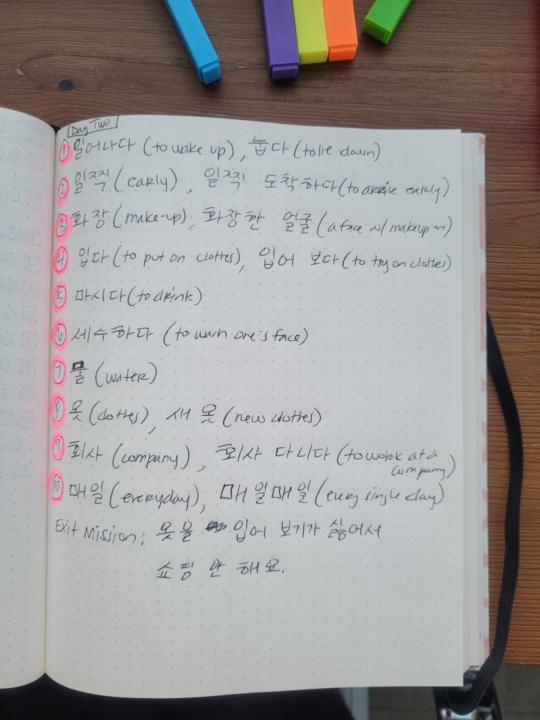 Day Two
① 일어나다 (to wake up), 눕다 (to lie down)
② 일찍 (early), 일찍 도착하다 (to arrive early)
③ 화장 (make-up), 화장한 얼굴 (a face w/ makeup on)
④ 입다 (to put on clothes), 입어 보다 (to try on clothes)
⑤ 마시다 (to drink)
⑥ 세수하다 (to wash one's face)
⑦ 물 (water)
⑧ 옷 (clothes), 새 옷 (new clothes)
⑨ 회사 (company), 회사 다니다 (to work at a
company)
⑩ 매일 (everyday), 매일매일 (every single day)
Exit Mission: 옷을 입어 보기가 싫어서
쇼핑 안 해요.